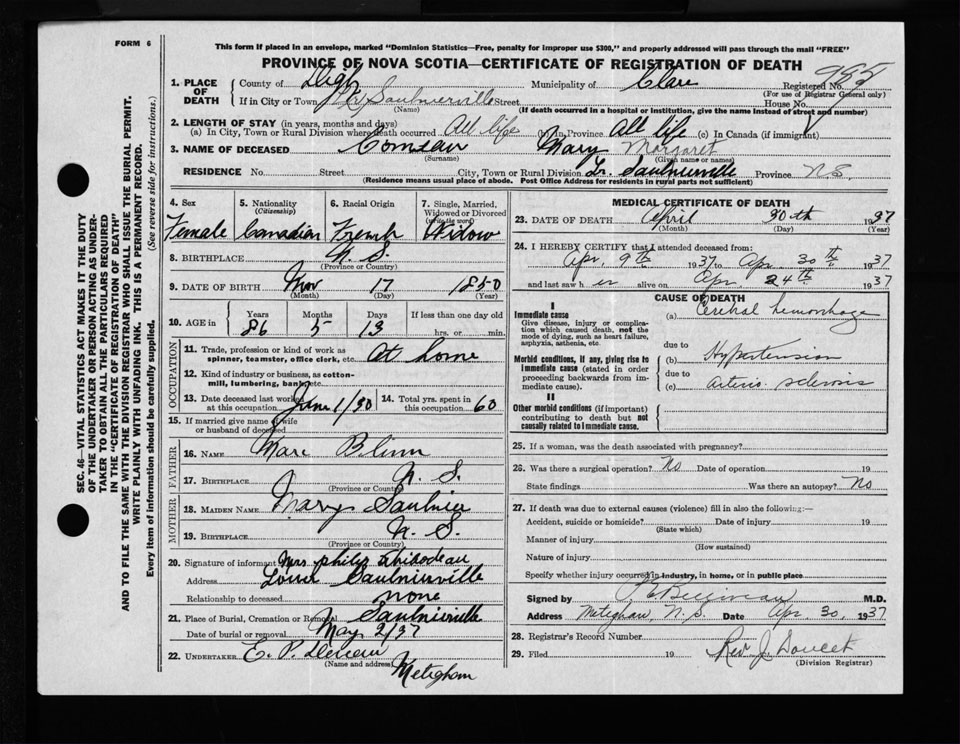 FORM 6
This form if placed in an envelope, marked "Dominion Statistics—Free, penalty for improper use $300," and properly addressed will pass through the mail "FREE"
PROVINCE OF NOVA SCOTIA—CERTIFICATE OF REGISTRATION OF DEATH
985
1. PLACE OF DEATH County of Digby Municipality of Clare Registered No.
(For use of Registrar General only)
If in City or Town Lr Saulnierville Street House No.
(Name) (If death occurred in a hospital or institution, give the name instead of street and number)
2. LENGTH OF STAY (in years, months and days)
(a) In City, Town or Rural Division where death occurred All life (b) in Province All life (c) In Canada (if immigrant)
3. NAME OF DECEASED Comeau Mary Margaret
(Surname) (Given name or names)
RESIDENCE No. Street City, Town or Rural Division Lr. Saulnierville Province N.S.
(Residence means usual place of abode. Post Office Address for residents in rural parts not sufficient)
4. Sex 5. Nationality (Citizenship) 6. Racial Origin 7. Single, Married, Widowed or Divorced (write the word)
Female Canadian French Widow
8. BIRTHPLACE N. S.
(Province or Country)
9. DATE OF BIRTH Nov 17 1850
(Month) (Day) (Year)
10. AGE in Years Months Days If less than one day old
86 5 13 hrs. or min.
OCCUPATION
11. Trade, profession or kind of work as spinner, teamster, office clerk, etc. At home
12. Kind of industry or business, as cotton-mill, lumbering, bank, etc.
13. Date deceased last worked at this occupation June 1/30 14. Total yrs. spent in this occupation 60
15. If married give name of wife or husband of deceased
FATHER
16. NAME Marc Blinn
17. BIRTHPLACE N. S.
(Province or Country)
MOTHER
18. MAIDEN NAME Mary Saulnier
19. BIRTHPLACE N. S.
(Province or Country)
20. Signature of informant Mrs philip thibodeau
Address Lower Saulnierville
Relationship to deceased none
21. Place of Burial, Cremation or Removal Saulnierville
Date of burial or removal May 2/37
22. UNDERTAKER E. P. Deveau
(Name and address) Meteghan
MEDICAL CERTIFICATE OF DEATH
23. DATE OF DEATH April 30th 1937
(Month) (Day) (Year)
24. I HEREBY CERTIFY that I attended deceased from:
Apr. 9th 1937 to Apr. 30th 1937
and last saw her alive on Apr. 24th 1937
CAUSE OF DEATH
I
Immediate cause
Give disease, injury or complication which caused death, not the mode of dying, such as heart failure, asphyxia, asthenia, etc.
(a) Cerebral hemorrhage
due to
Morbid conditions, if any, giving rise to immediate cause (stated in order proceeding backwards from immediate cause).
(b) Hypertension
due to
(c) arterio sclerosis
II
Other morbid conditions (if important) contributing to death but not causally related to immediate cause.
25. If a woman, was the death associated with pregnancy?
26. Was there a surgical operation? No Date of operation 19
State findings Was there an autopsy? No
27. If death was due to external causes (violence) fill in also the following:—
Accident, suicide or homicide? Date of injury 19
(State which)
Manner of injury
(How sustained)
Nature of injury
Specify whether injury occurred in industry, in home, or in public place
Signed by Belliveau M.D.
Address Meteghan, N. S. Date Apr 30, 1937
28. Registrar's Record Number
29. Filed 19 Rev J. Doucet
(Division Registrar)
SEC. 46—VITAL STATISTICS ACT MAKES IT THE DUTY
OF THE UNDERTAKER OR PERSON ACTING AS UNDERTAKER TO OBTAIN ALL THE PARTICULARS REQUIRED
IN THE "CERTIFICATE OF REGISTRATION OF DEATH"
AND TO FILE THE SAME WITH THE DIVISION REGISTRAR WHO SHALL ISSUE THE BURIAL PERMIT.
WRITE PLAINLY WITH UNFADING INK. THIS IS A PERMANENT RECORD.
Every item of information should be carefully supplied. (See reverse side for instructions.)